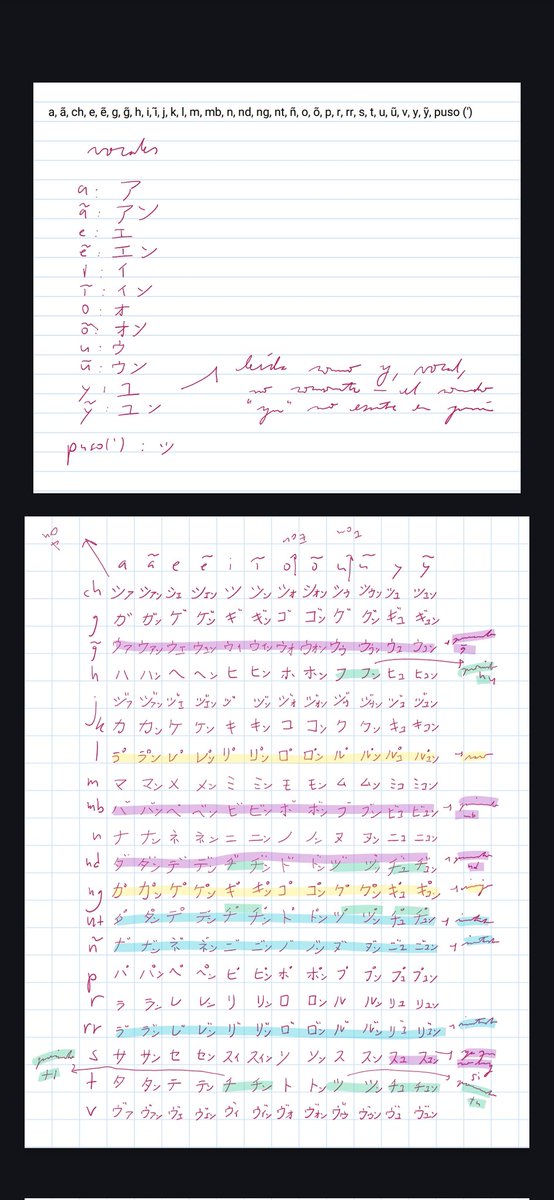 a, ã, ch, e, ẽ, g, g̃, h, i, ĩ, j, k, l, m, mb, n, nd, ng, nt, ñ, o, õ, p, r, rr, s, t, u, ũ, v, y, ỹ, puso (')
vocales
a : ア
ã : アン
e : エ
ẽ : エン
i : イ
ĩ : イン
o : オ
õ : オン
u : ウ
ũ : ウン
y : ユ
ỹ : ユン
como y, vocal,
no consonante – el sonido
"yu" no existe en
puso(') : ッ
a ã e ẽ i ĩ o õ u ũ y ỹ
ch ツァ ツァン ツェ ツェン ツ ツン ツォ ツォン ツゥ ツゥン ツュ ツュン
g ガ ガン ゲ ゲン ギ ギン ゴ ゴン グ グン ギュ ギュン
g̃ ウァ ウァン ウェ ウェン ウィ ウィン ウォ ウォン ウゥ ウゥン ウュ ウュン
h ハ ハン ヘ ヘン ヒ ヒン ホ ホン フ フン ヒュ ヒュン
j ヅァ ヅァン ヅェ ヅェン ヅ ヅン ヅォ ヅォン ヅゥ ヅゥン ヅュ ヅュン
k カ カン ケ ケン キ キン コ コン ク クン キュ キュン
l ラ゚ ラ゚ン レ゚ レ゚ン リ゚ リ゚ン ロ゚ ロ゚ン ル゚ ル゚ン
m マ マン メ メン ミ ミン モ モン ム ムン ミュ ミュン
mb バ バン ベ ベン ビ ビン ボ ボン ブ ブン ビュ ビュン
n ナ ナン ネ ネン ニ ニン ノ ノン ヌ ヌン ニュ ニュン
nd ダ ダン デ デン ヂ ヂン ド ドン ヅ ヅン ヂュ ヂュン
ng カ゚ カ゚ン ケ゚ ケ゚ン キ゚ キ゚ン コ゚ コ゚ン ク゚ ク゚ン キ゚ュ キ゚ュン
nt ダ ダン デ デン ヂ ヂン ド ドン ヅ ヅン ヂュ ヂュン
ñ ナ゙ ナ゙ン ネ゙ ネ゙ン ニ゙ ニ゙ン ノ゙ ノ゙ン ヌ゙ ヌ゙ン ニ゙ュ ニ゙ュン
p パ パン ペ ペン ピ ピン ポ ポン プ プン
r ラ ラン レ レン リ リン ロ ロン ル ルン リュ リュン
rr ラ゙ ラ゙ン レ゙ レ゙ン リ゙ リ゙ン ロ゙ ロ゙ン ル゙ ル゙ン リ゙ュ リ゙ュン
s サ サン セ セン スィ スィン ソ ソン ス スン スュ スュン
t タ タン テ テン チ チン ト トン ツ ツン チュ チュン
v ヴァ ヴァン ヴェ ヴェン ヴィ ヴィン ヴォ ヴォン ヴゥ ヴゥン ヴュ ヴュン